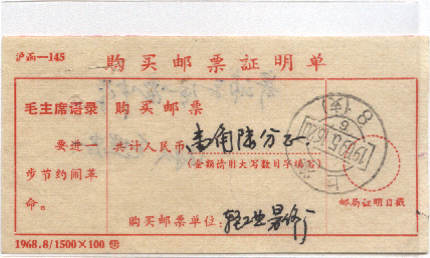 沪西—145
购买邮票证明单
毛主席语录
要进一
步节约闹革
命。
购买邮票
共计人民币 壹角陆分正
(金额请用大写数目字填写)
购买邮票单位:轻工业
邮局证明日戳
1968.8/1500×100